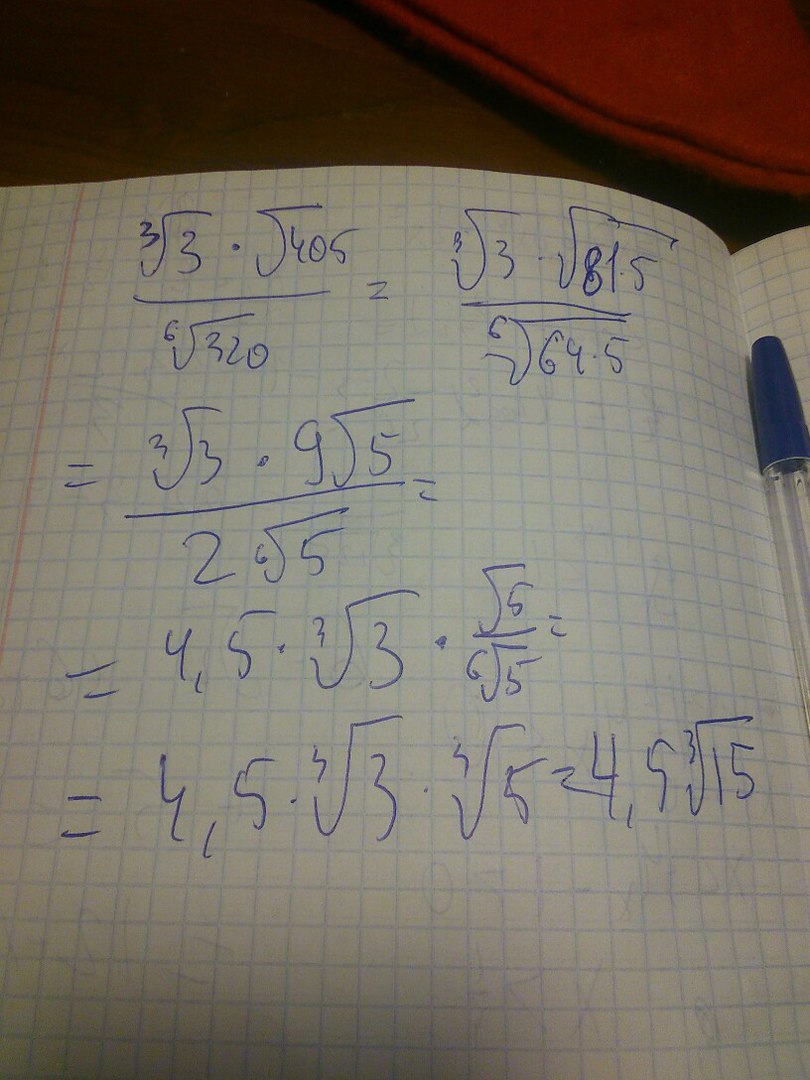 ∛3 · √405 / ⁶√320 = ∛3 · √81·5 / ⁶√64·5
= ∛3 · 9√5 / 2 ⁶√5 =
= 4,5 · ∛3 · √5 / ⁶√5 =
= 4,5 · ∛3 · ∛5 = 4,5 ∛15